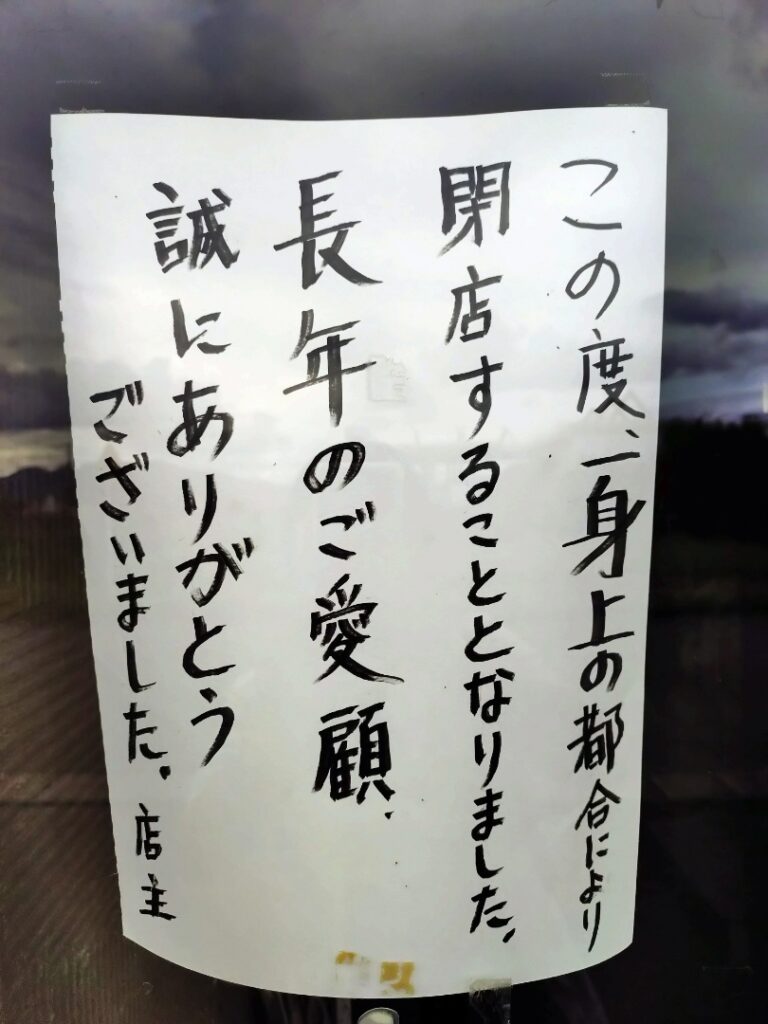 この度、一身上の都合により
閉店することとなりました。
長年のご愛顧、
誠にありがとう
ございました。店主